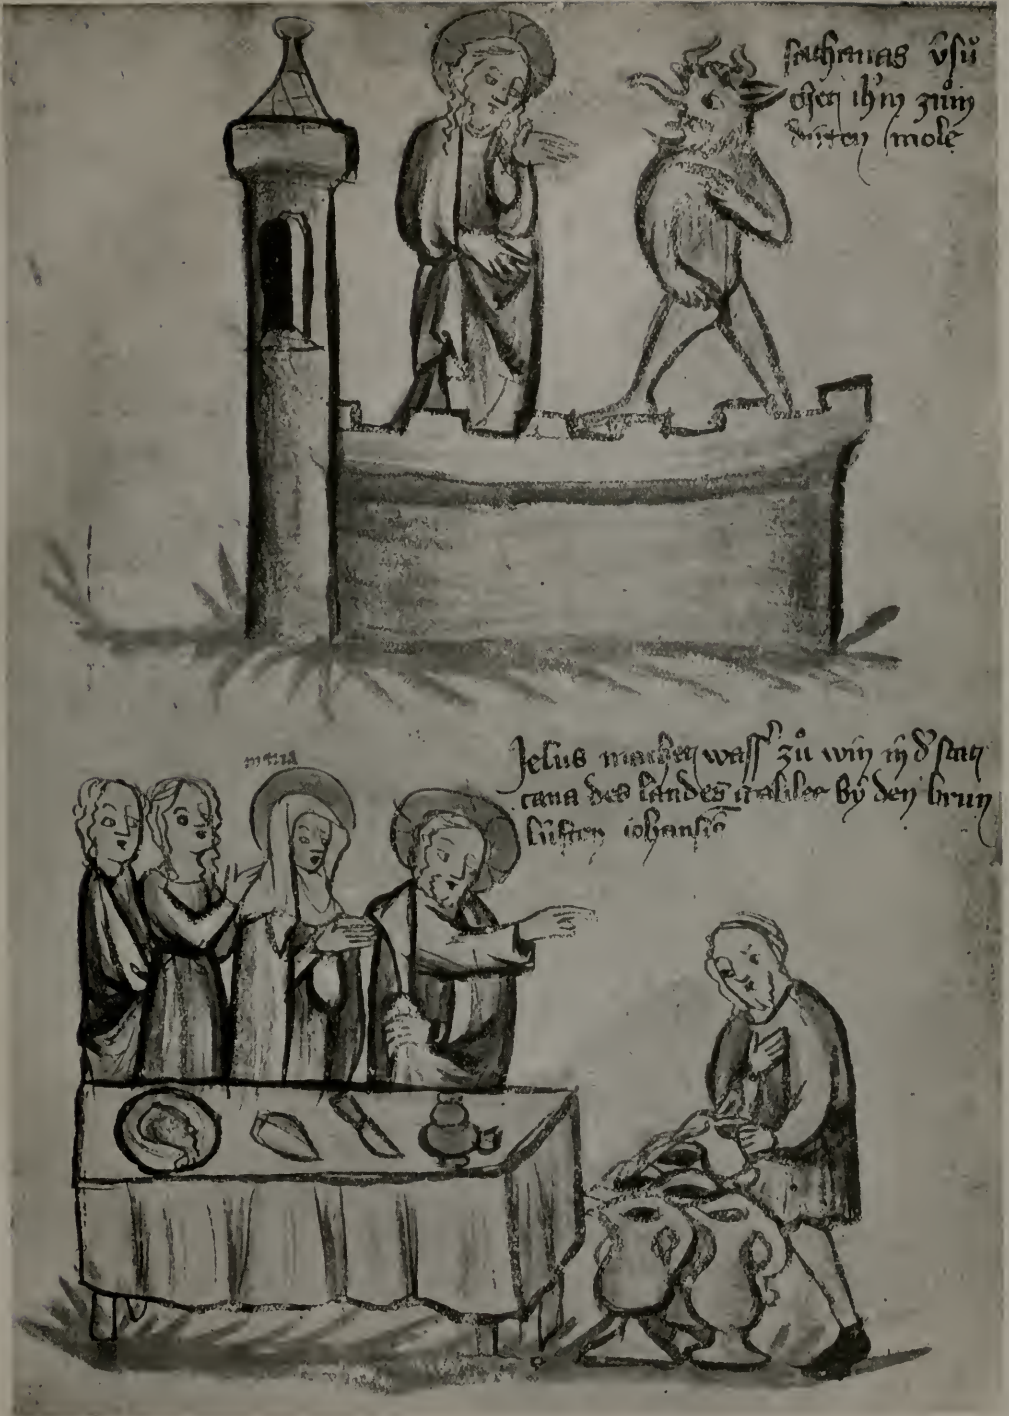 sathanas v̄sů
chen ihm zům
dritten mole
maria
Jesus machen wassʼ zů win in dʼ statt
cana des landes galilee by den brun
lüften iohansis